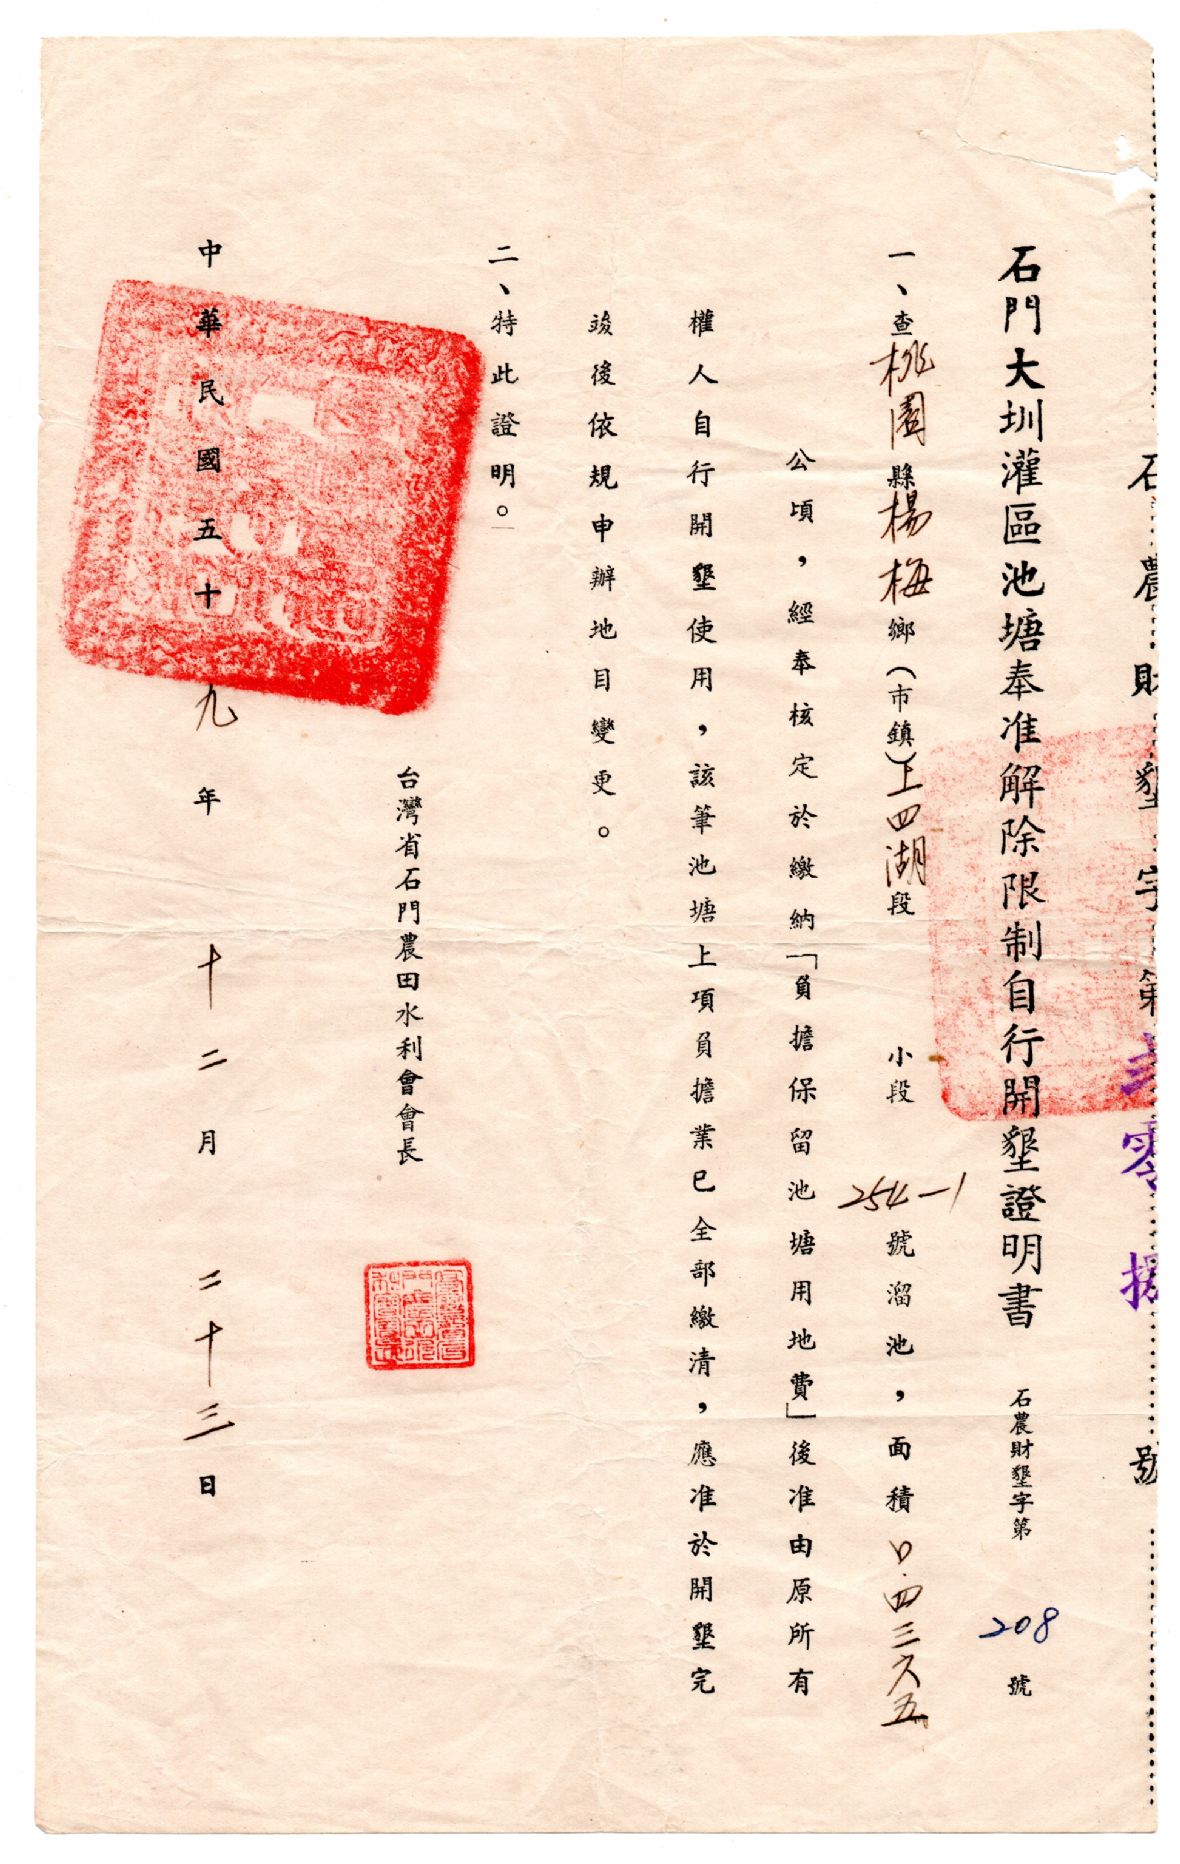 石農財墾字第 零 號
石門大圳灌區池塘奉准解除限制自行開墾證明書 石農財墾字第 208 號
一、查桃園縣楊梅鄉(市鎮)上四湖段 小段 254-1 號溜池,面積0.四三六五
公頃,經奉核定於繳納「負擔保留池塘用地費」後准由原所有
權人自行開墾使用,該筆池塘上項負擔業已全部繳清,應准於開墾完
竣後依規申辦地目變更。
二、特此證明。
台灣省石門農田水利會會長
中華民國五十九年 十二月 二十三日